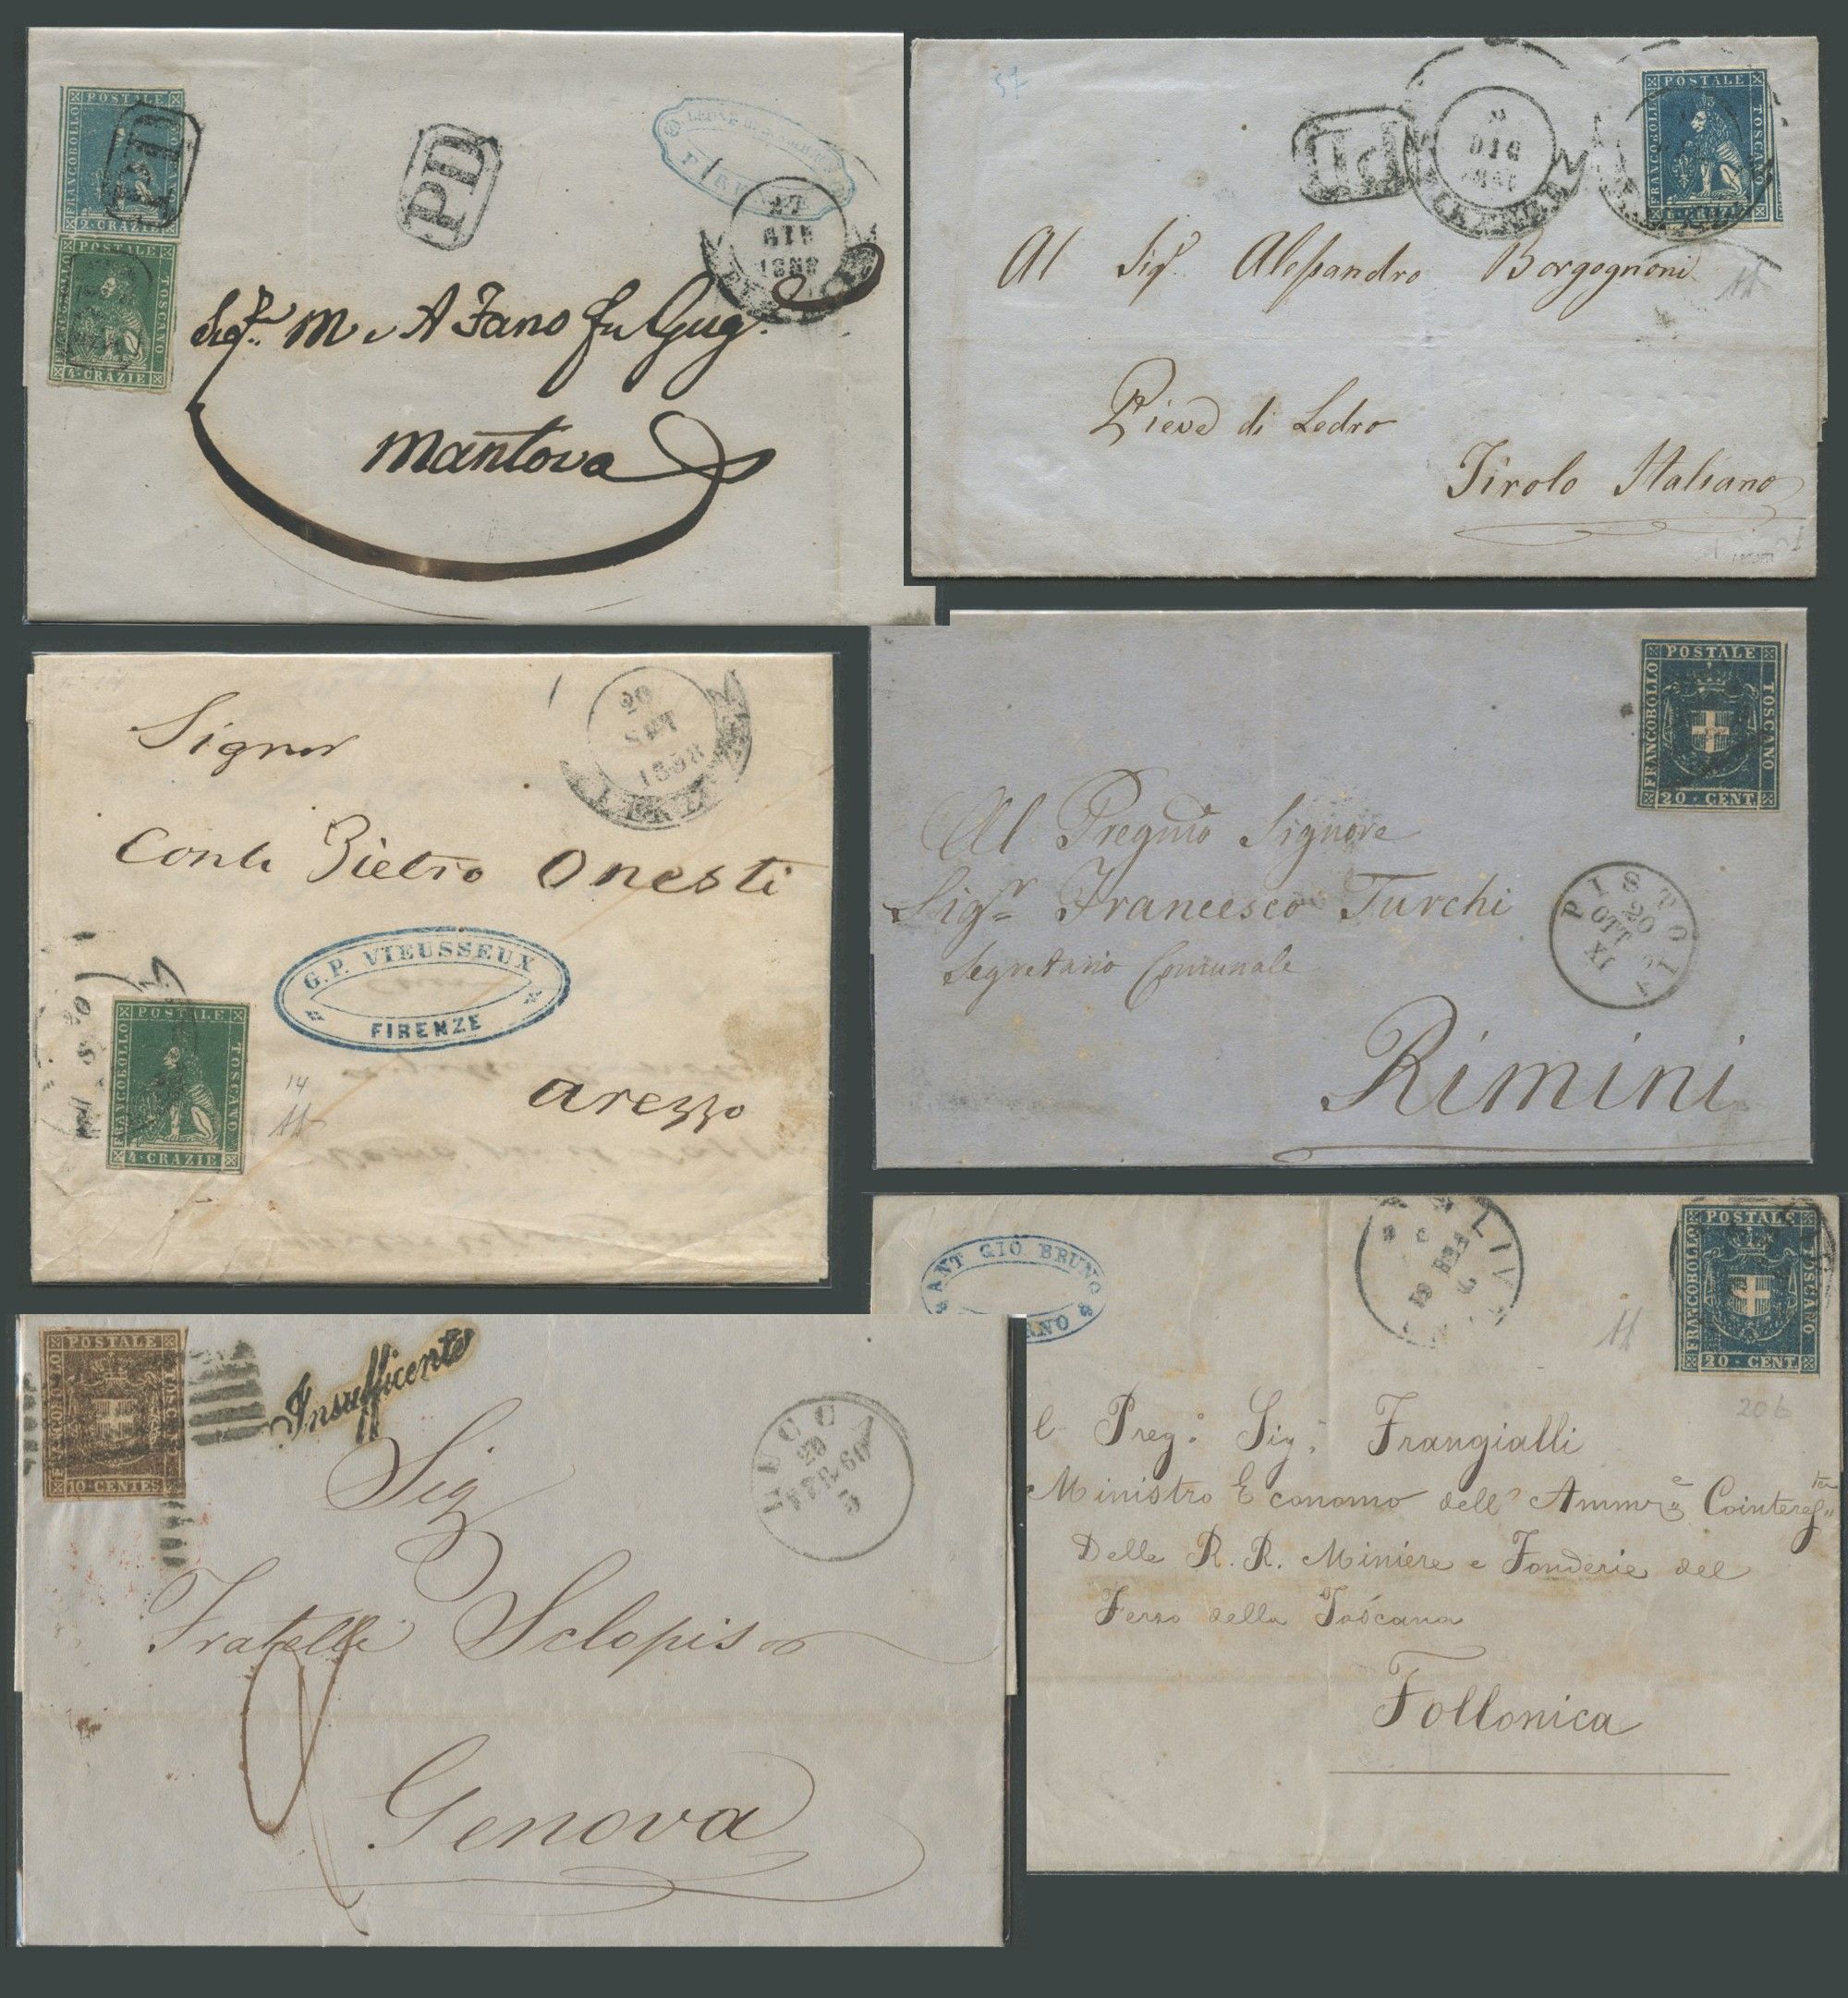 POSTALE
FRANCOBOLLO
TOSCANO
2·CRAZIE
PD
POSTALE
TOSCANO
4·CRAZIE
PD
1858
Sigr. M. A Fano fu Gug.
Mantova
57
PD
DIC
POSTALE
FRANCOBOLLO
TOSCANO
6·CRAZIE
Al Sigr. Alessandro Borgognoni
Pieve di Ledro
Tirolo Italiano
20
SET
1858
Signor
Conte Pietro Onesti
G.P. VIEUSSEUX
FIRENZE
POSTALE
FRANCOBOLLO
TOSCANO
4·CRAZIE
14
Arezzo
POSTALE
FRANCOBOLLO
TOSCANO
20·CENT.
Al Pregmo Signore
Sigr= Francesco Turchi
Segretario Comunale
Rimini
PISTOIA
20
OTT
XI
ANT GIO BRUNO
FEB
61
POSTALE
FRANCOBOLLO
TOSCANO
20·CENT.
20 b
Preg: Sig: Frangialli
Ministro Economo dell'
Delle R. R. Miniere e Fonderie del
Ferro della Toscana
Follonica
POSTALE
10 CENTES
Insufficente
LUCCA
28
FEB 60
5
Sig
Fratelli Sclopis
Genova